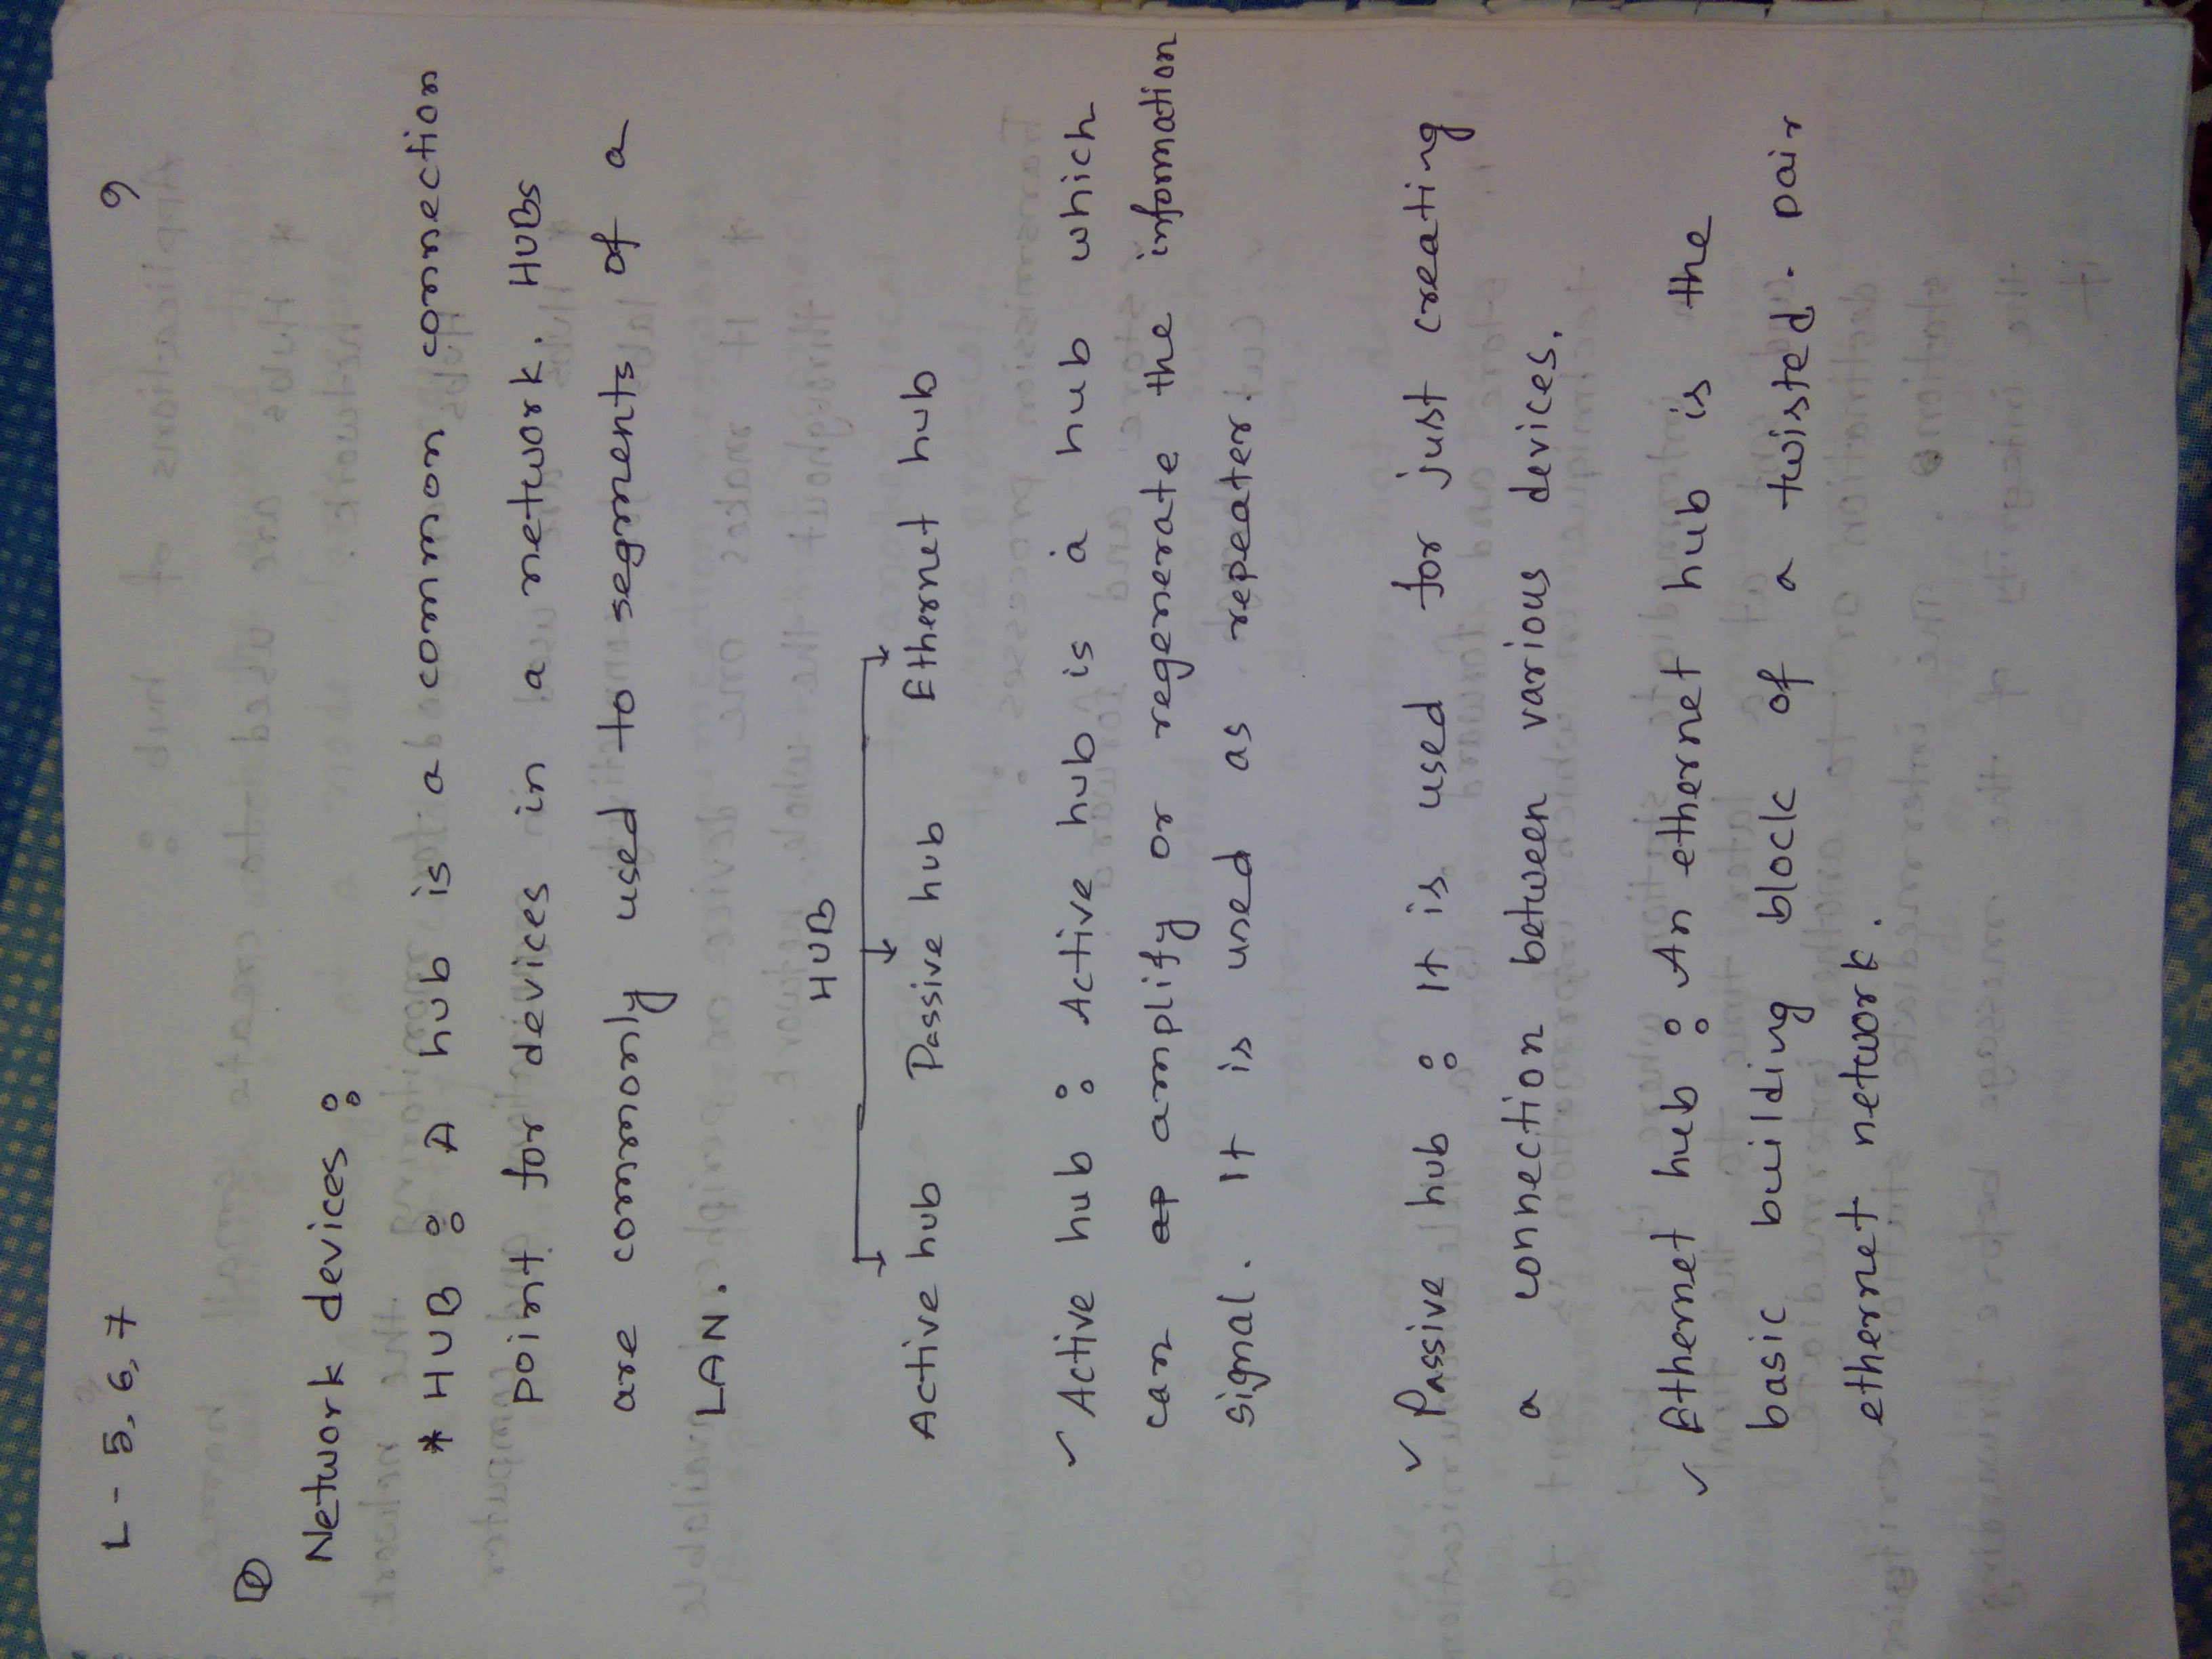 L - 5, 6, 7
9
Network devices :
* HUB : A hub is a common connection
point for devices in a network. HUBs
are commonly used to segments of a
LAN.
HUB
Active hub Passive hub Ethernet hub
✓ Active hub : Active hub is a hub which
can ap amplify or regenerate the information
signal. It is used as repeater.
✓ Passive hub : It is used for just creating
a connection between various devices.
✓ Ethernet hub : An ethernet hub is the
basic building block of a twisted - pair
ethernet network.